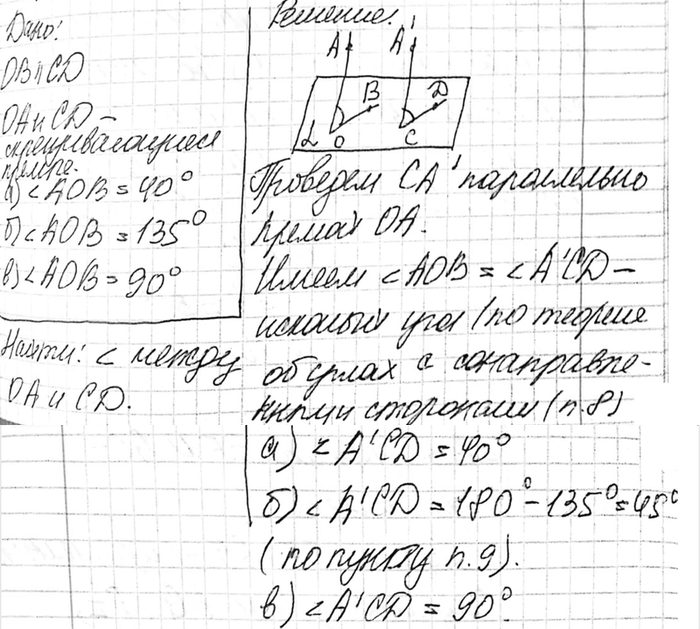 Дано:
OB || CD
OA и CD –
скрещивающиеся
прямые.
а) < AOB = 40°
б) < AOB = 135°
в) < AOB = 90°
Найти: < между
OA и CD.
Решение:
A A'
B D
α O C
Проведем CA' параллельно
прямой OA.
Имеем < AOB = < A'CD –
искомый угол (по теореме
об углах с сонаправле-
нными сторонами (п.8)
а) < A'CD = 40°
б) < A'CD = 180° - 135° = 45°
(по пункту п.9).
в) < A'CD = 90°.